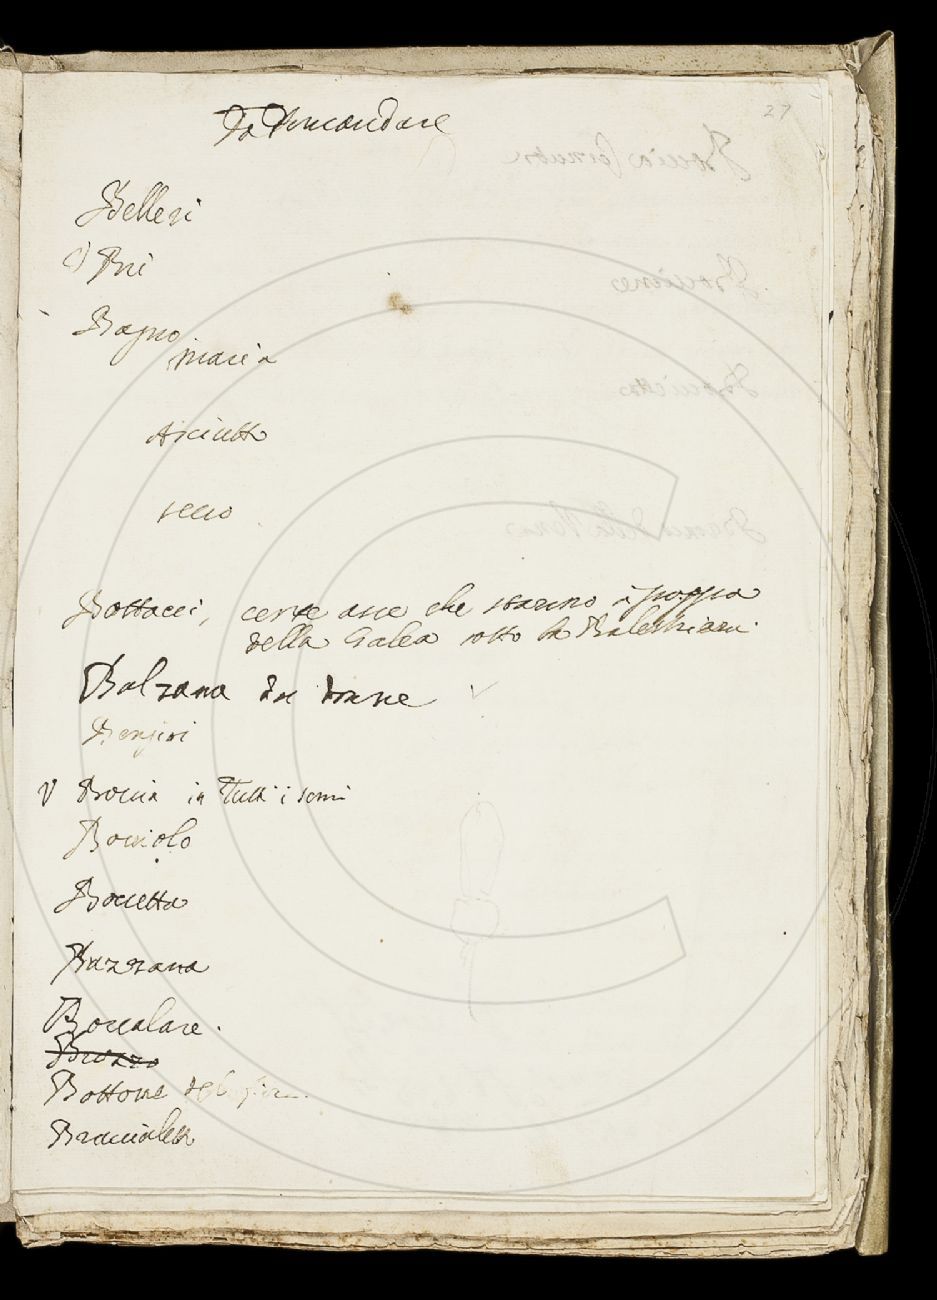 27
Da domandare
Belleri
Bri
Bagno
maria
Asciutto
secco
Bottacci, certe asse che stanno a poppa
della Galea sotto la Balestriera
Balzana da donne
V Boccia in tutti i sensi
Bocciolo
Boccetta
Bazzana
Boccalare.
Bottone del
Braccialetti